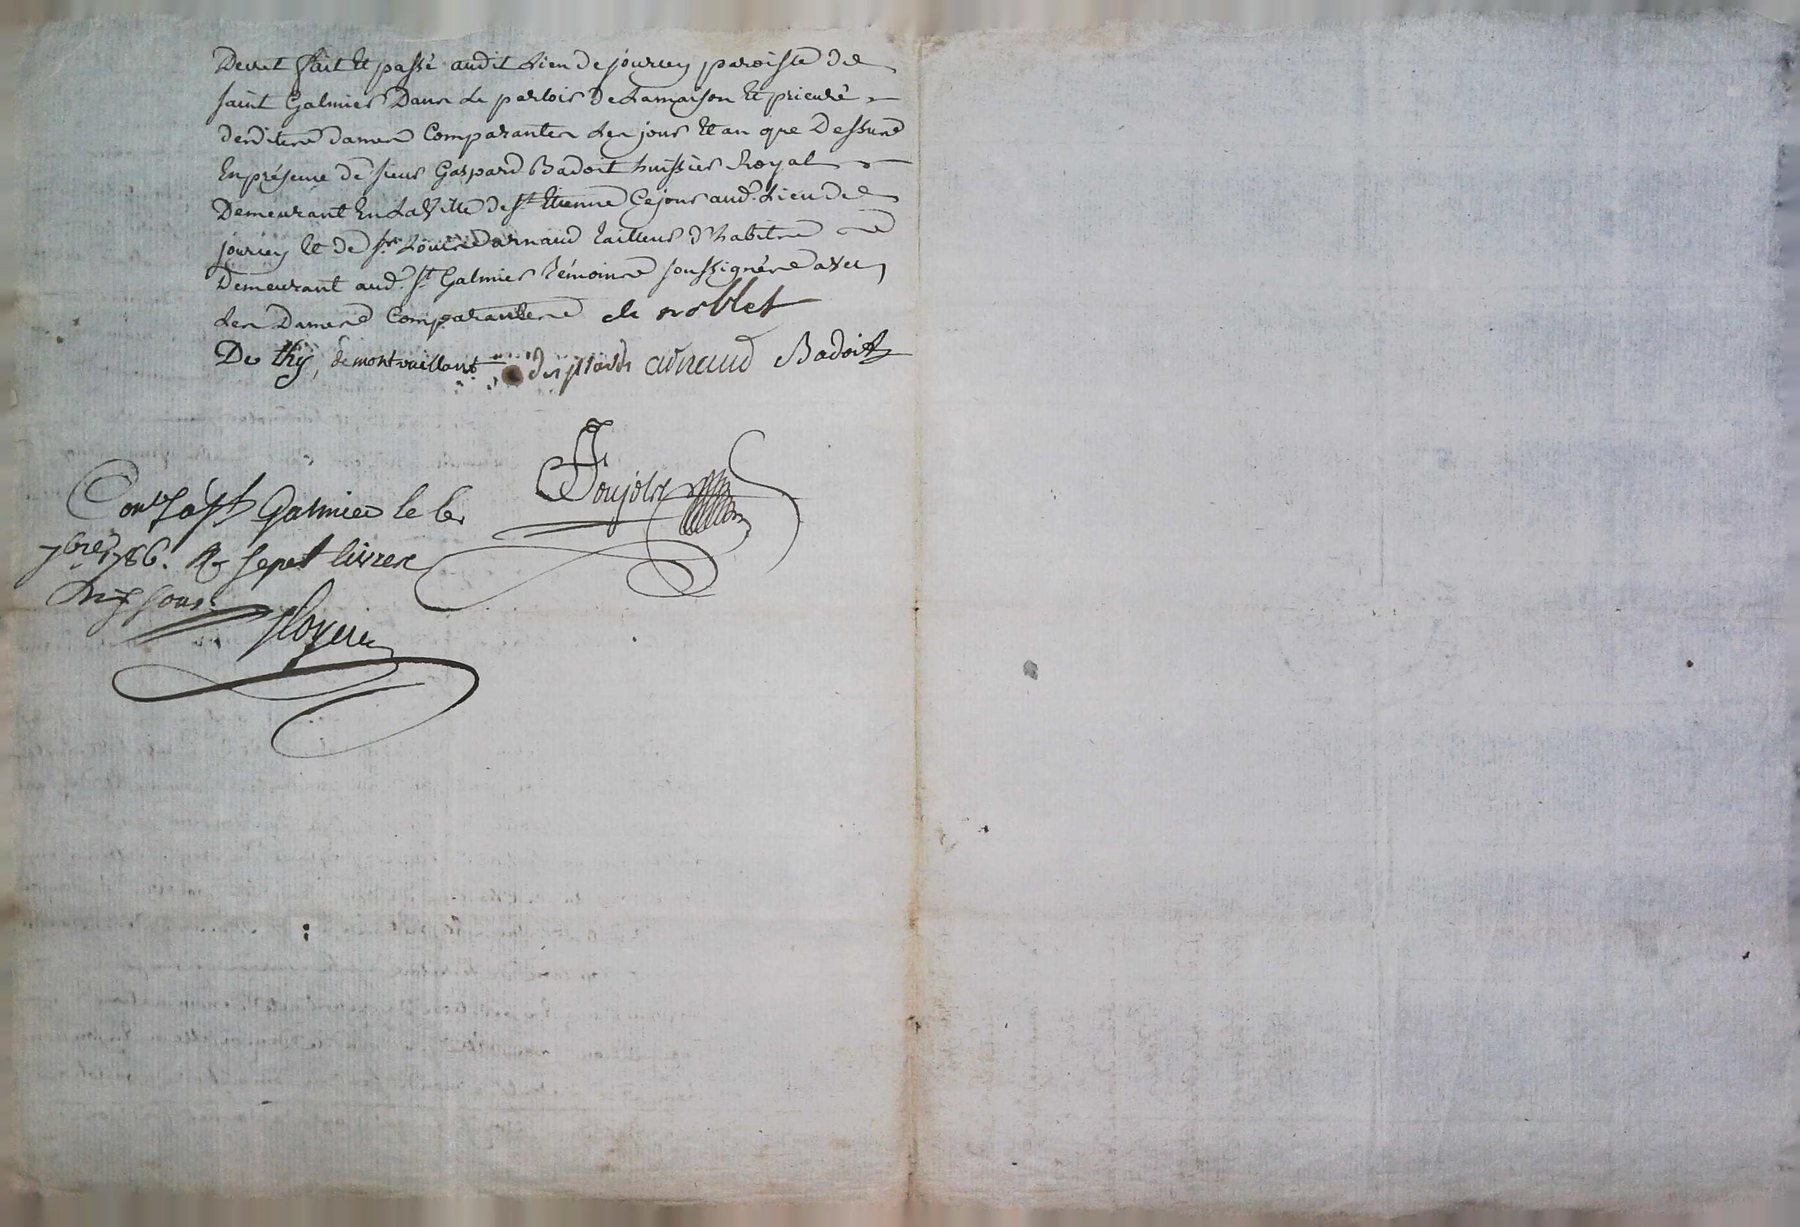 Decret fait et passé audit Lieu de jourcey paroisse de
saint Galmier Dans le parloir de Lamaison et prieuré
desdites dames Comparantes les jour et an que Dessus
En présence de sieur Gaspard Badoit huissier Royal
Demeurant En La Ville de st Etienne Ce jour aud. Lieu de
jourcey et de sr. Louis Darnaud tailleur d'habits
Demeurant aud. st Galmier témoins soussignés avec
Les Dames Comparantes de noblet
De thy, de montvaillant arnaud Badoit
Poujols
Contlé a st Galmier le
7bre 1786. R sept livres
Dix sous